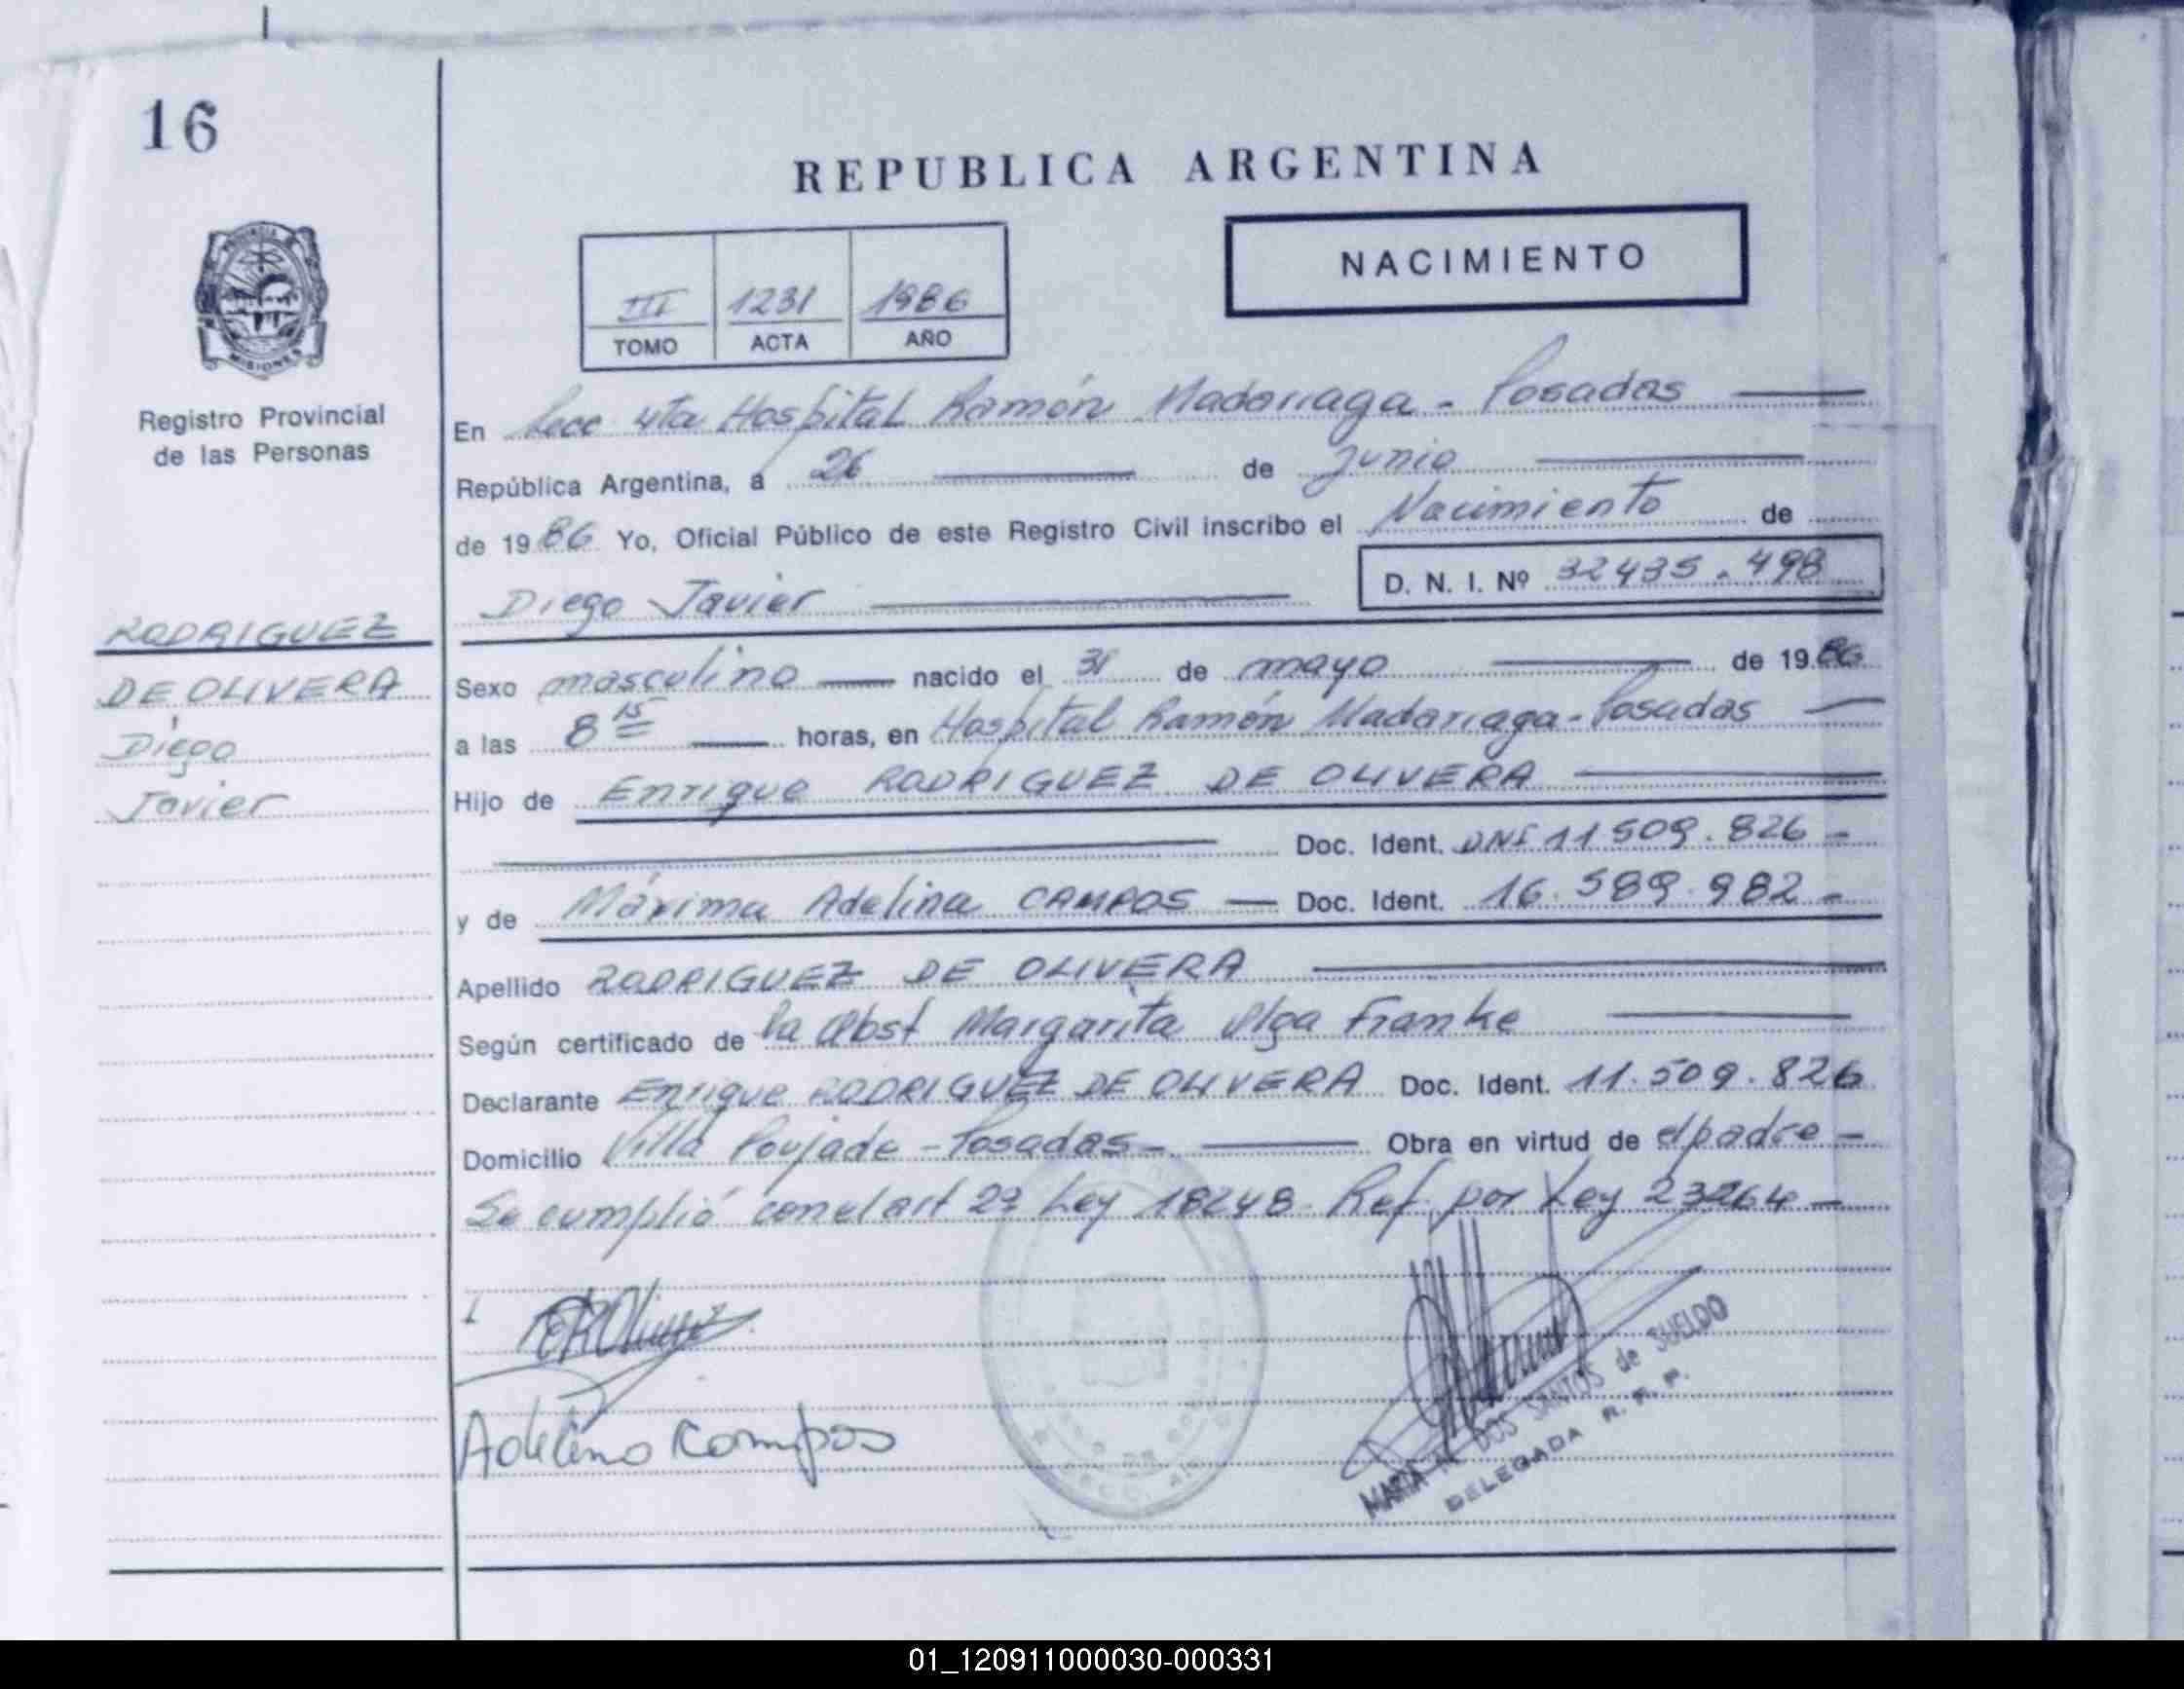 16
REPUBLICA ARGENTINA
NACIMIENTO
III 1231 1986
TOMO ACTA AÑO
PROVINCIA DE
MISIONES
Registro Provincial
de las Personas
En Secc 4ta Hospital Ramón Madariaga - Posadas
República Argentina, a 26 de Junio
de 1986 Yo, Oficial Público de este Registro Civil inscribo el Nacimiento de
Diego Javier D. N. I. Nº 32435.498
RODRIGUEZ
DE OLIVERA
Diego
Javier
Sexo masculino nacido el 31 de mayo de 1986
a las 8 15 horas, en Hospital Ramón Madariaga - Posadas
Hijo de Enrique RODRIGUEZ DE OLIVERA
Doc. Ident. DNI 11 509.826 -
y de Máxima Adelina CAMPOS — Doc. Ident. 16.589.982 -
Apellido RODRIGUEZ DE OLIVERA
Según certificado de la Obst Margarita Olga Franke
Declarante Enrique RODRIGUEZ DE OLIVERA Doc. Ident. 11.509.826
Domicilio Villa Poujade - Posadas - Obra en virtud de el padre -
Se cumplió con el art 2º Ley 18248. Ref. por Ley 23264 -
Adelina Campos
MARIA DOS SANTOS de SUELDO
DELEGADA R. P. P.
01_120911000030-000331